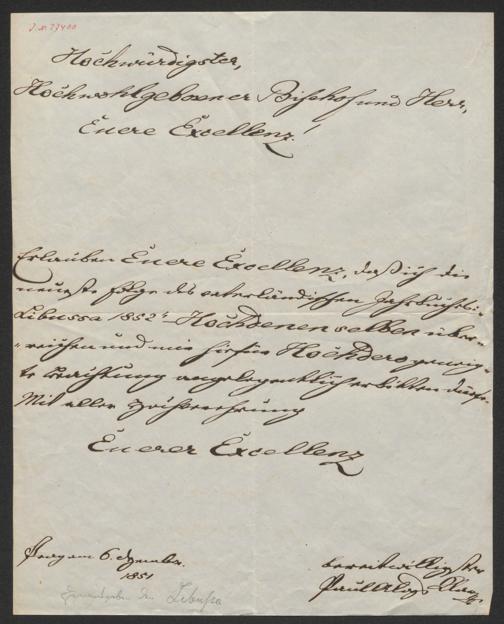 J. N 77400
Hochwürdigster,
Hochwohlgeborener Bischof und Herr,
Euere Excellenz!
Erlauben Euere Excellenz, daß ich die
neueste Folge des vaterländischen Jahrbuches
Libussa 1852" Hochdenenselben über-
reichen und mir hiefür Hochdero geneig-
te Beachtung angelegentlich erbitten darf.
Mit aller Hochverehrung
Euerer Excellenz
Prag am 6. Dezember
1851
bereitwilligster
Paul Aloys Klar
Herausgeber der Libussa